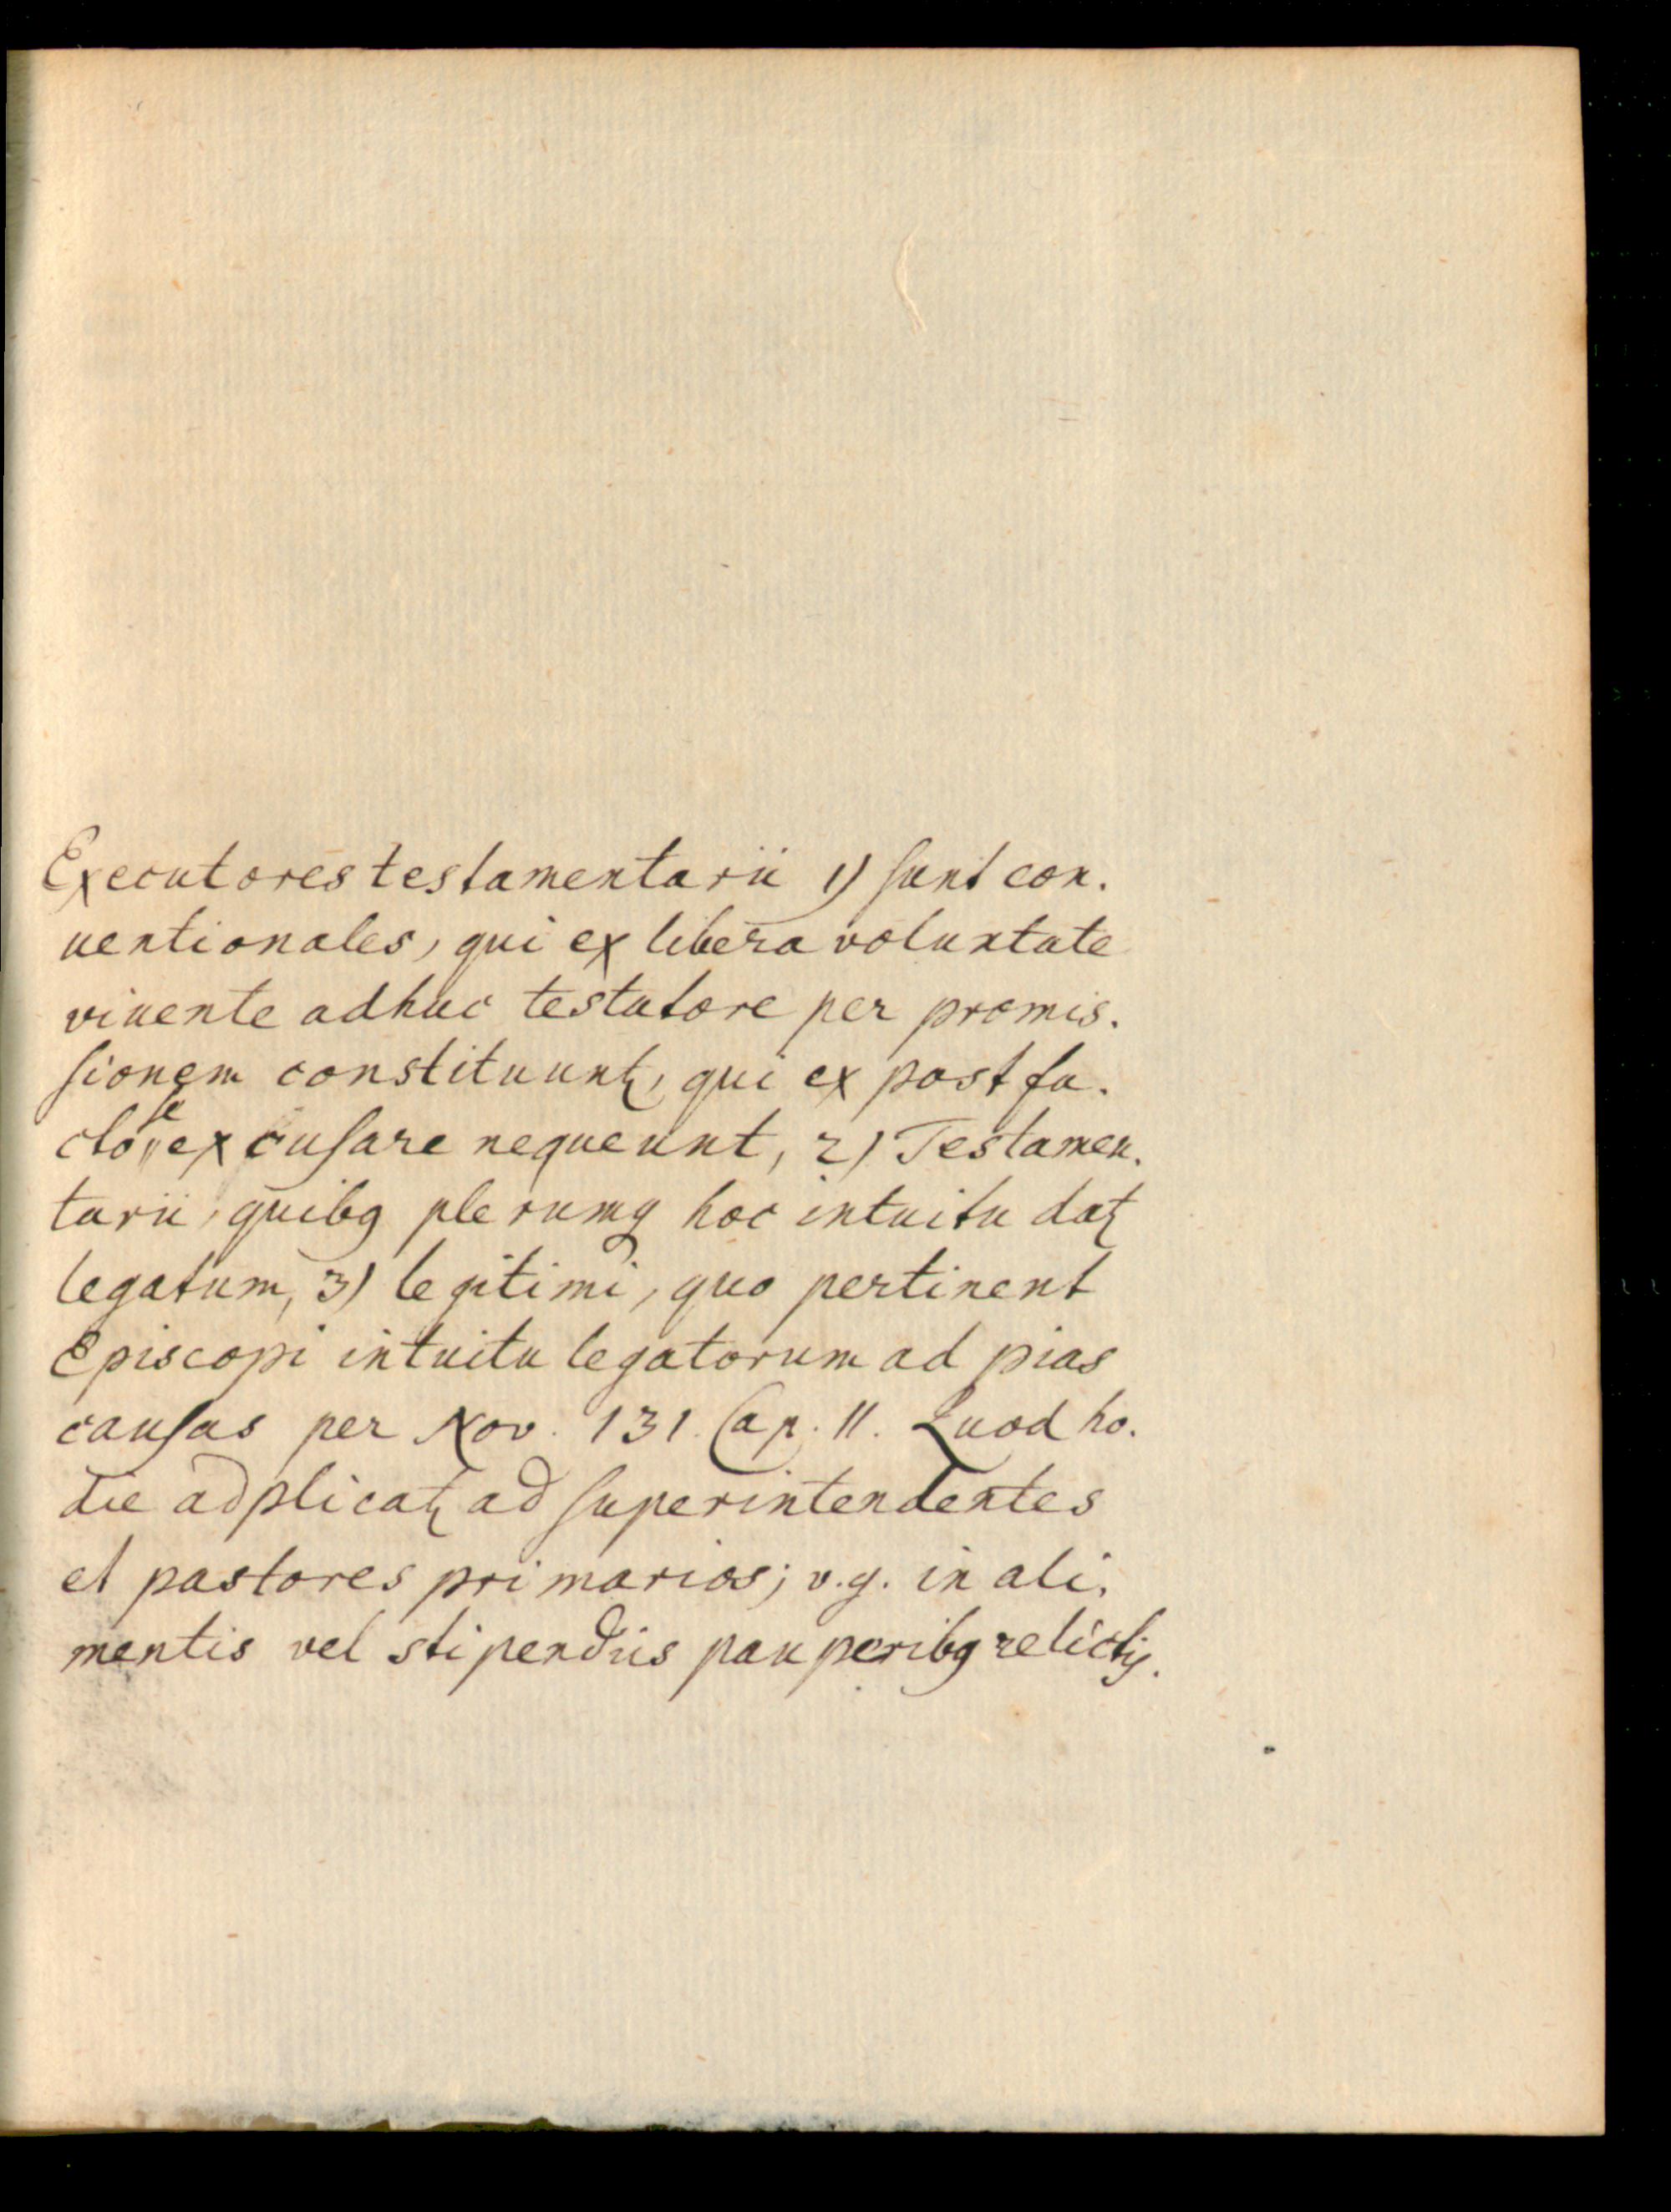 Executores testamentarii 1) sunt con.
uentionales, qui ex libera voluntate
viuente adhuc testatore per promis.
sionem constituunt, qui ex post fa.
cto se excusare nequeunt, 2) Testamen.
tarii, quibq plerumq hoc intuitu datꝭ
legatum, 3) legitimi, quo pertinent
Episcopi intuitu legatorum ad pias
causas per Nov. 131. Cap. 11. Quod ho.
die adplicatꝭ ad superintendentes
et pastores primarios; v.g. in ali.
mentis vel stipendiis pauperibq relictis.